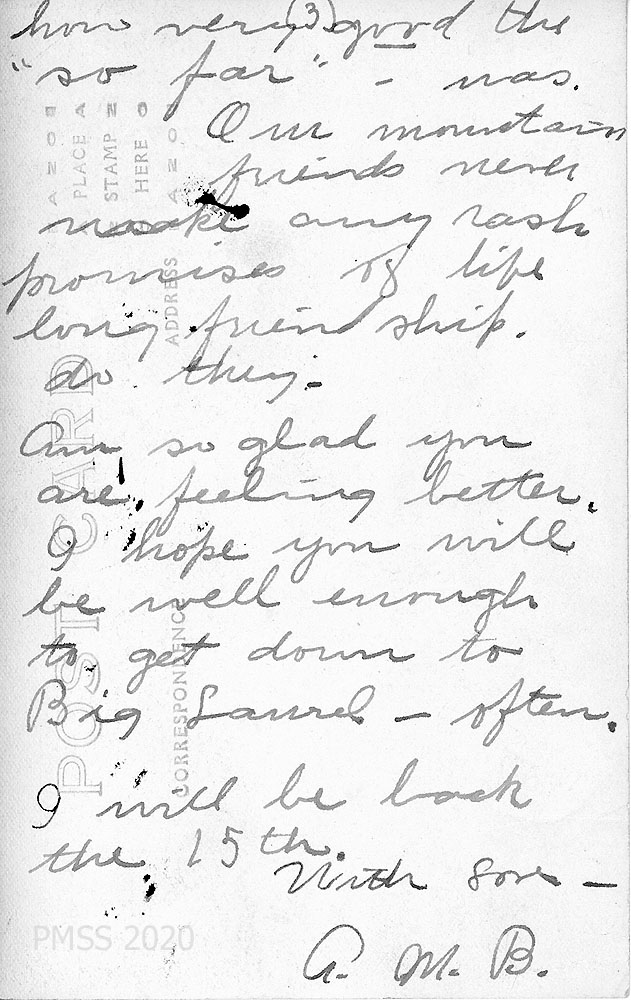 (3)
how very good the
"so far" - was.
Our mountain
friends never
make any rash
promises of life
long friendship.
do they.
Am so glad you
are feeling better.
I hope you will
be well enough
to get down to
Big Laurel - often.
I will be back
the 15th.
With love -
A. M. B.
POST CARD
CORRESPONDENCE
ADDRESS
PLACE
STAMP
HERE
PMSS 2020